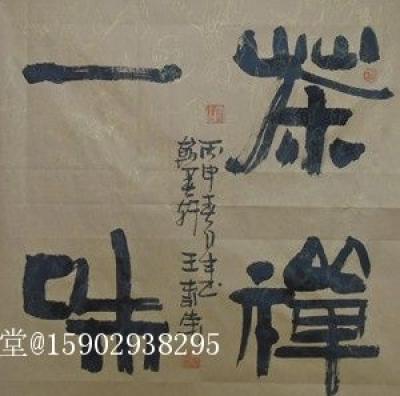 茶禅
一味
丙申春月
王
堂@15902938295